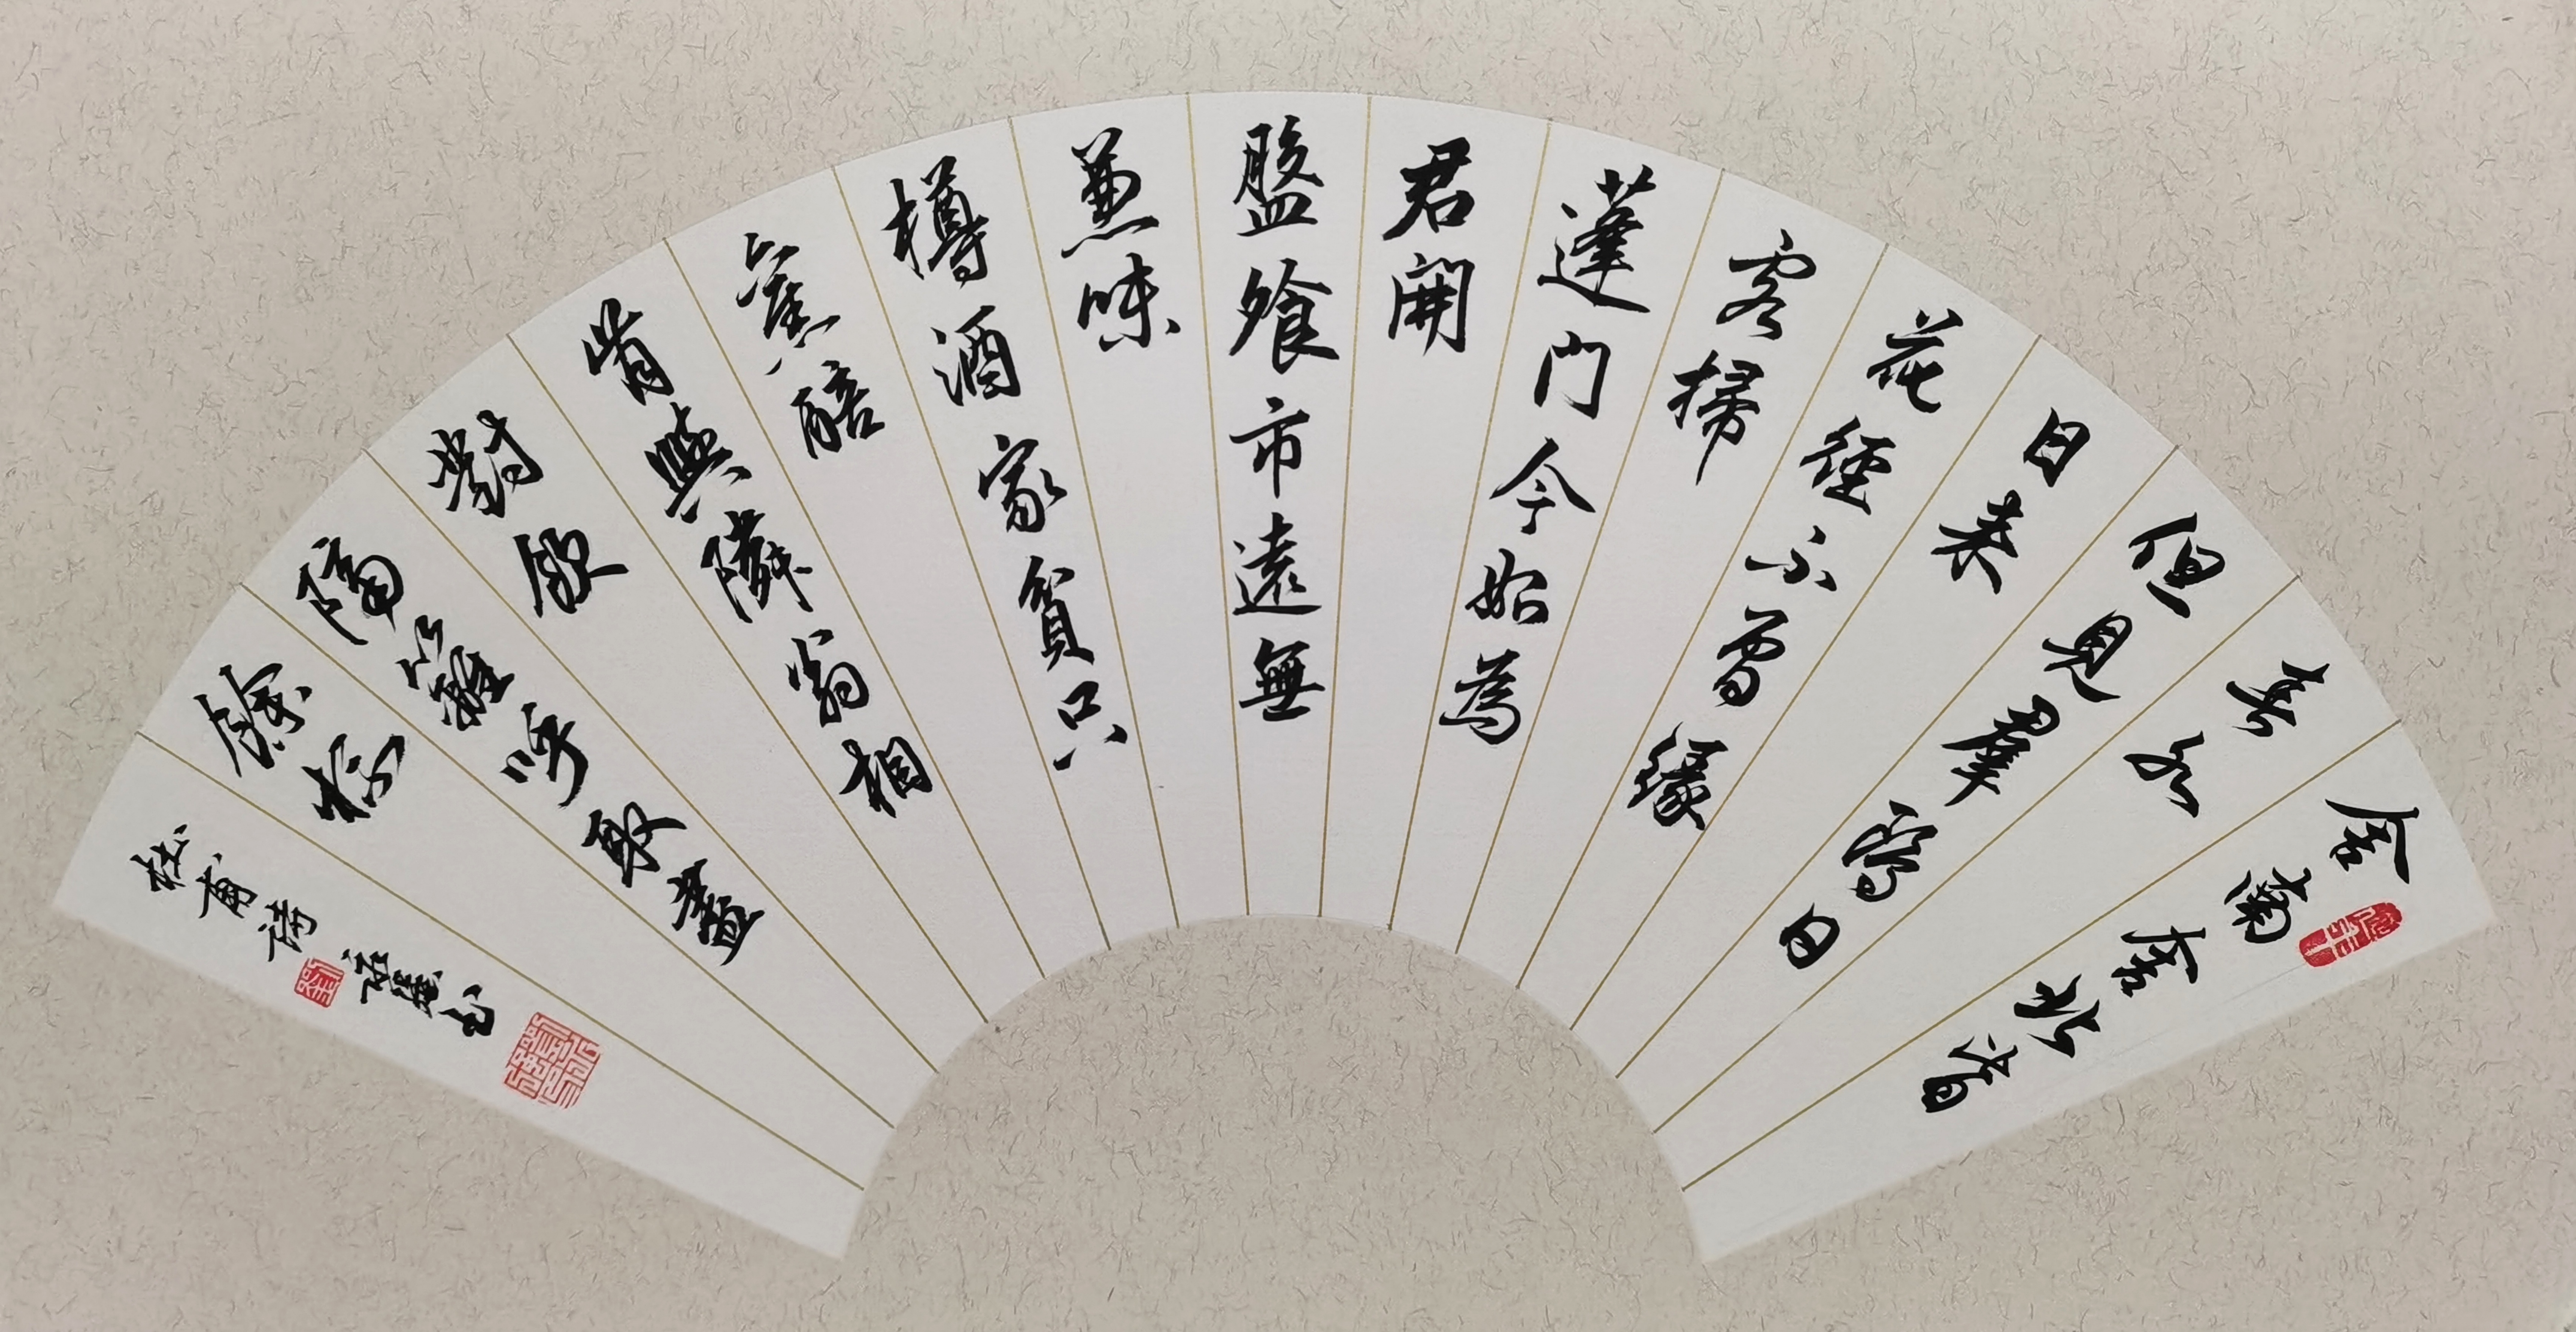 舍南舍北皆
春水
但見羣鷗日
日来
花徑不曾緣
客掃
蓬門今始為
君開
盤飧市遠無
兼味
樽酒家貧只
舊醅
肯與隣翁相
對飲
隔籬呼取盡
餘杯
杜甫詩